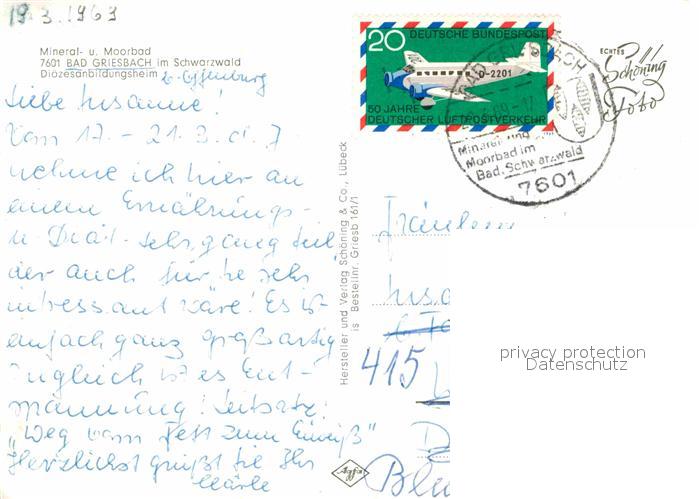 19.3.1969
Mineral- u. Moorbad
7601 BAD GRIESBACH im Schwarzwald
Diözesanbildungsheim b. Offenburg
Liebe Susanne!
Vom 17. - 21.3. d. J.
nehme ich hier an
einem Ernährungs-
u. Diät-Lehrgang teil,
der auch für Sie sehr
interessant wäre! Es ist
einfach ganz großartig
Zugleich ist es Ent-
spannung! Leitsatz:
„Weg vom Fett zum Eiweiß"
Herzlichst grüßt Sie Ihr
Hersteller und Verlag Schöning & Co., Lübeck
is Bestellnr. Griesb 161/1
Agfa
20 DEUTSCHE BUNDESPOST
D-2201
50 JAHRE
DEUTSCHER LUFTPOSTVERKEHR
Mineral- und
Moorbad im
Bad. Schwarzwald
7601
ECHTES
Schöning
Foto
Fräulein
415
privacy protection
Datenschutz